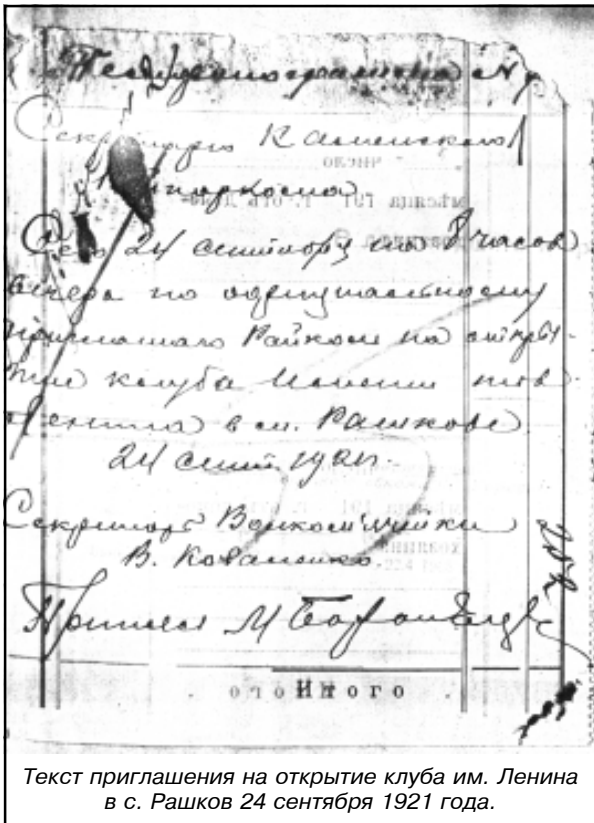 Секретарю Каменского
парткома
Сего 24 сентября 8 часов
вечера по
приглашаю Райком на откры-
тие клуба имени тов.
Ленина в м. Рашкове
24 сент. 1921 г.
Секретарь
В. Коваленко.
Принял М
Итого
Текст приглашения на открытие клуба им. Ленина
в с. Рашков 24 сентября 1921 года.